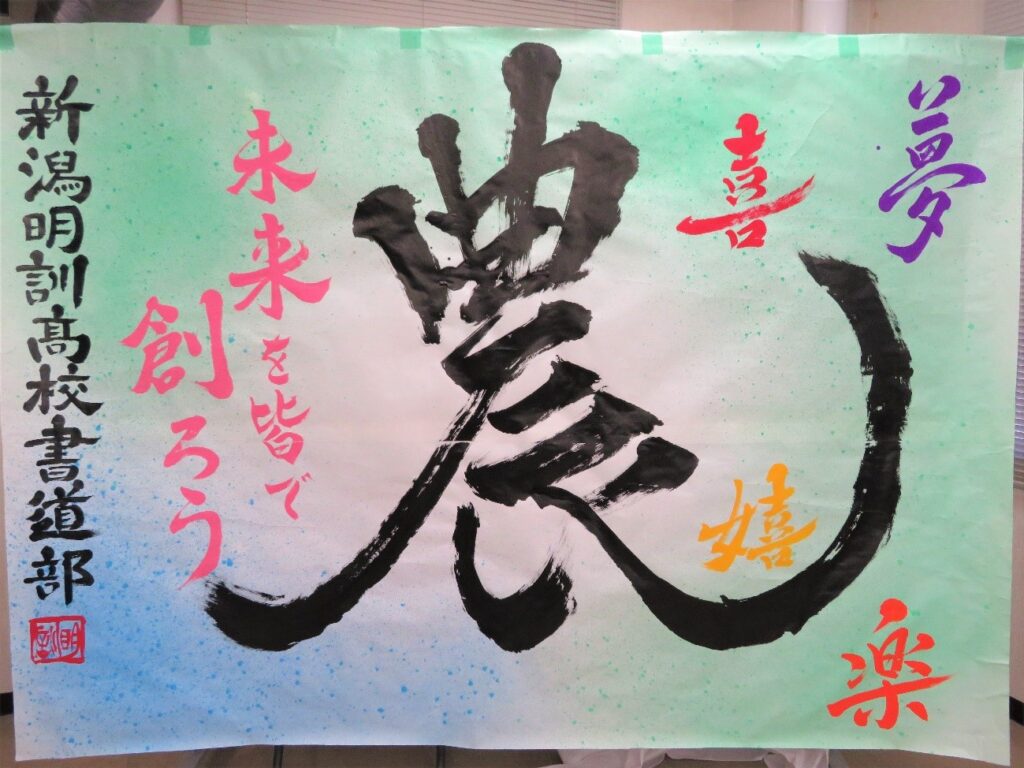 夢
喜
嬉
楽
農
未来を皆で
創ろう
新潟明訓高校書道部
明訓